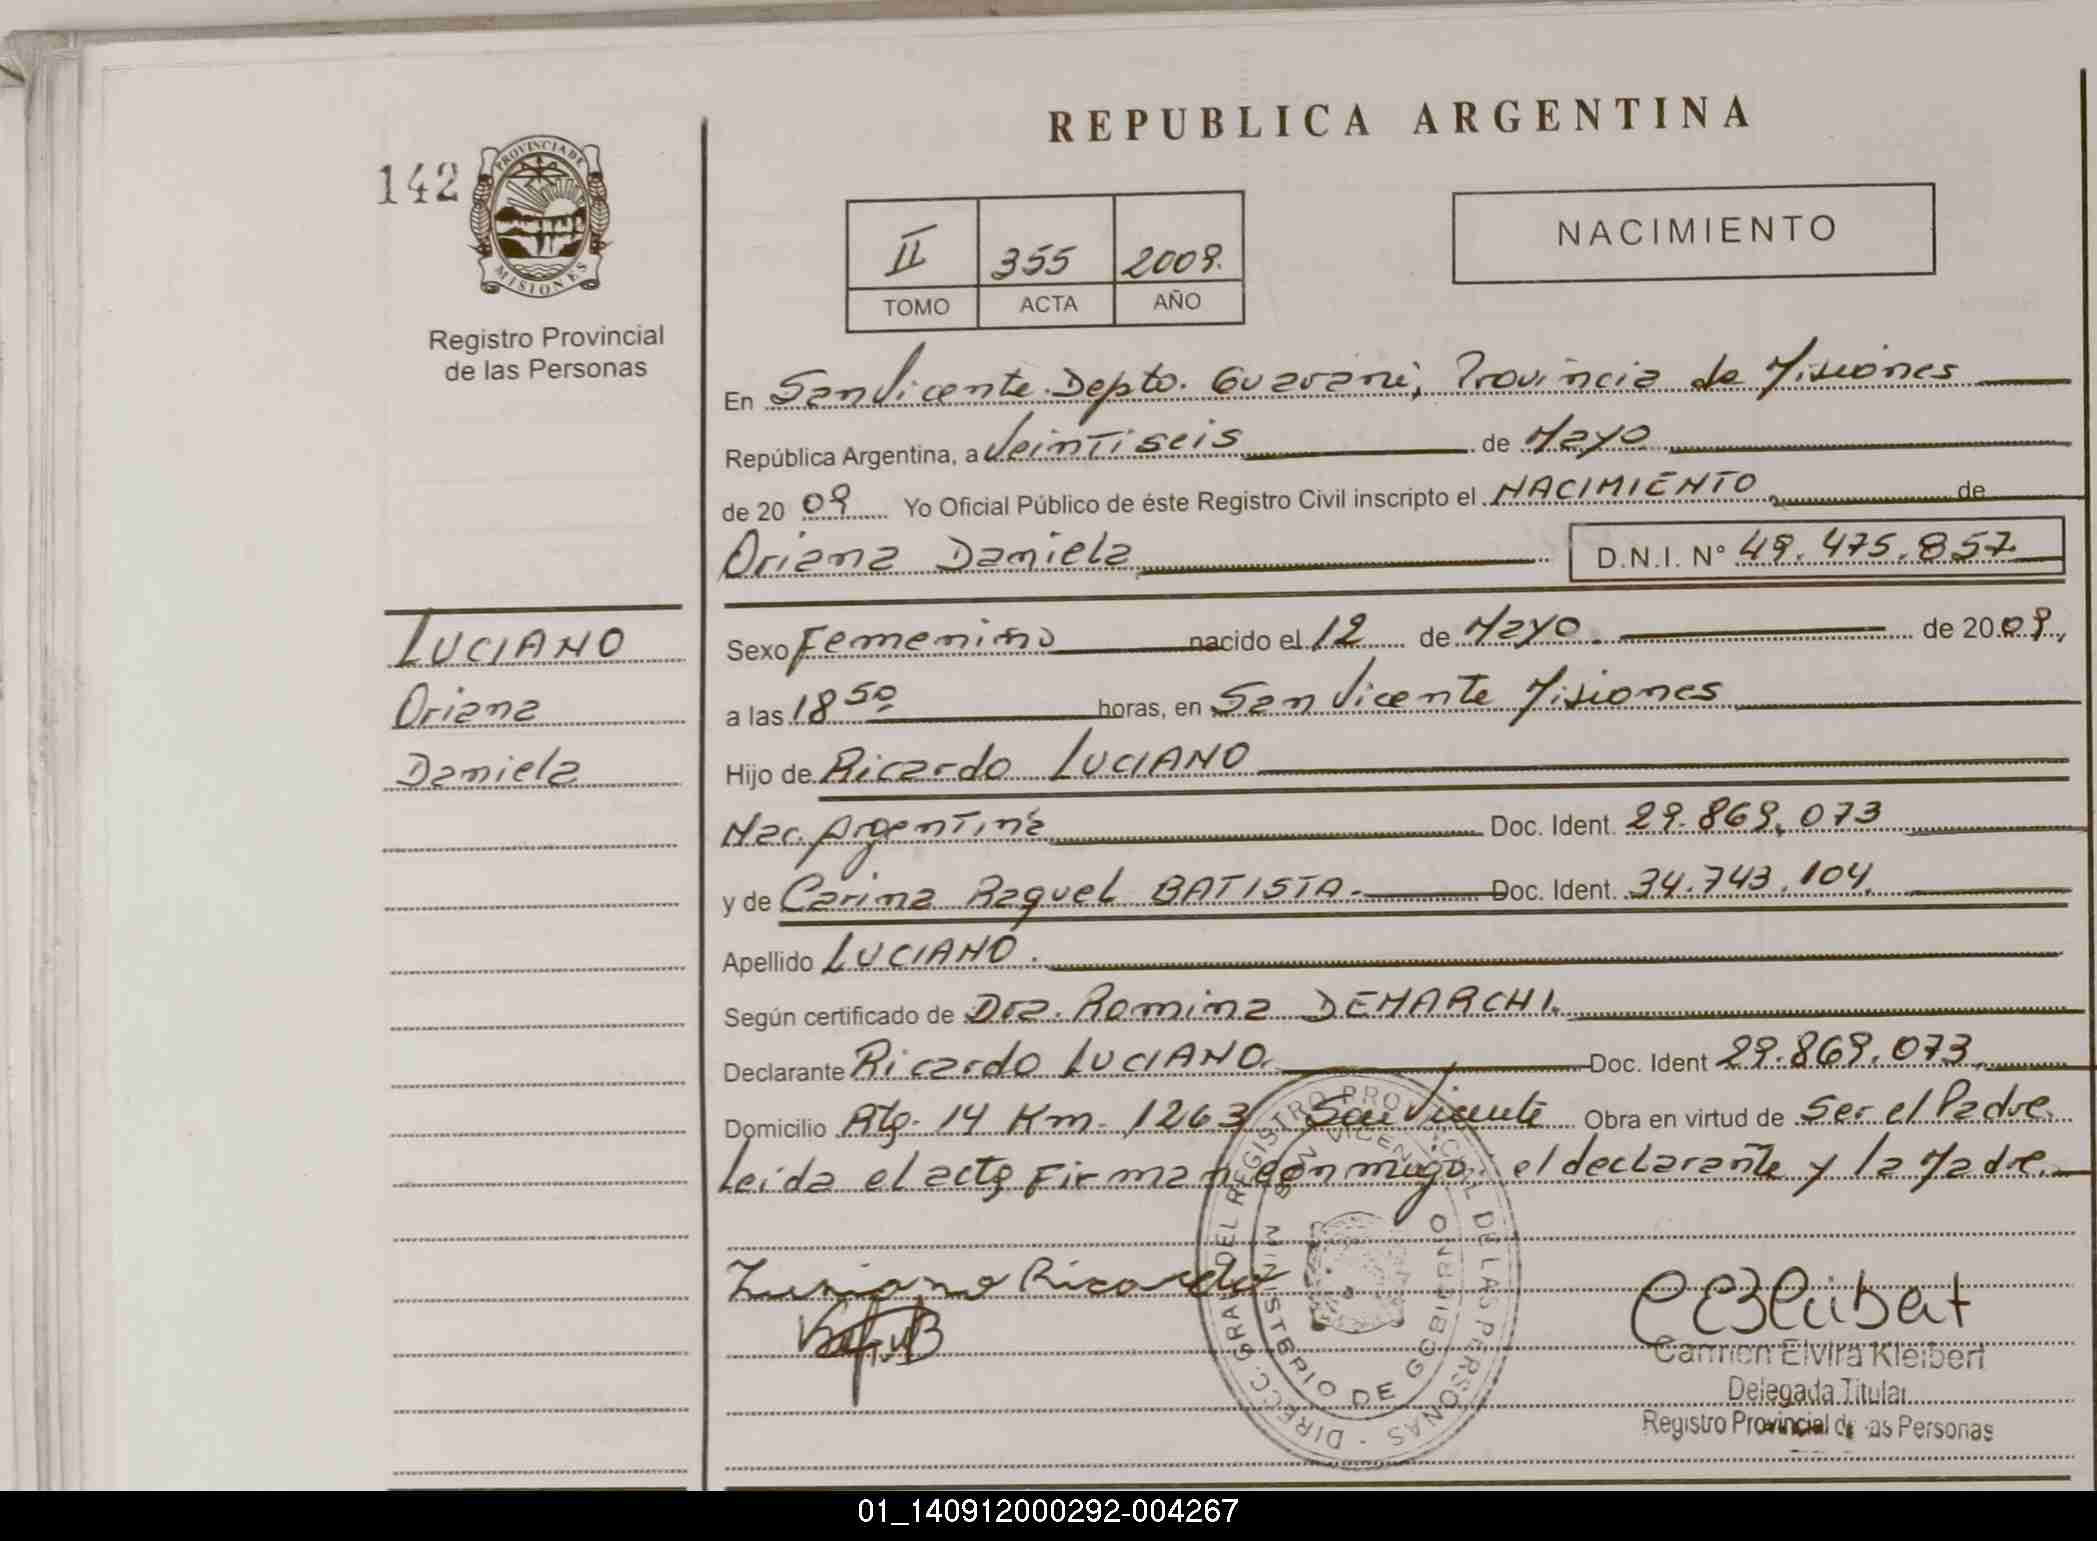 REPUBLICA ARGENTINA
142
PROVINCIA DE
MISIONES
Registro Provincial
de las Personas
II 355 2009.
TOMO ACTA AÑO
NACIMIENTO
En San Vicente. Depto. Guaraní, Provincia de Misiones
República Argentina, a Veintiseis de Mayo
de 20 09 Yo Oficial Público de éste Registro Civil inscripto el NACIMIENTO de
Oriana Daniela D.N.I. N° 49.475.857
LUCIANO
Oriana
Daniela
Sexo Femenino nacido el 12 de Mayo de 20 09,
a las 18 50 horas, en San Vicente Misiones
Hijo de Ricardo LUCIANO
Nac. Argentina Doc. Ident. 29.869.073
y de Carina Raquel BATISTA. Doc. Ident. 34.743.104
Apellido LUCIANO.
Según certificado de Dra. Romina DEMARCHI.
Declarante Ricardo LUCIANO. Doc. Ident 29.869.073
Domicilio Rtg. 14 Km. 1263 San Vicente Obra en virtud de Ser el Padre.
Leida el acta Firman conmigo el declarante y la Madre.
DIRECC. GRAL DEL REGISTRO PROVINCIAL DE LAS PERSONAS
SAN VICENTE
MINISTERIO DE GOBIERNO
Luciano Ricardo
Carmen Elvira Kleibert
Delegada Titular
Registro Provincial de las Personas
01_140912000292-004267